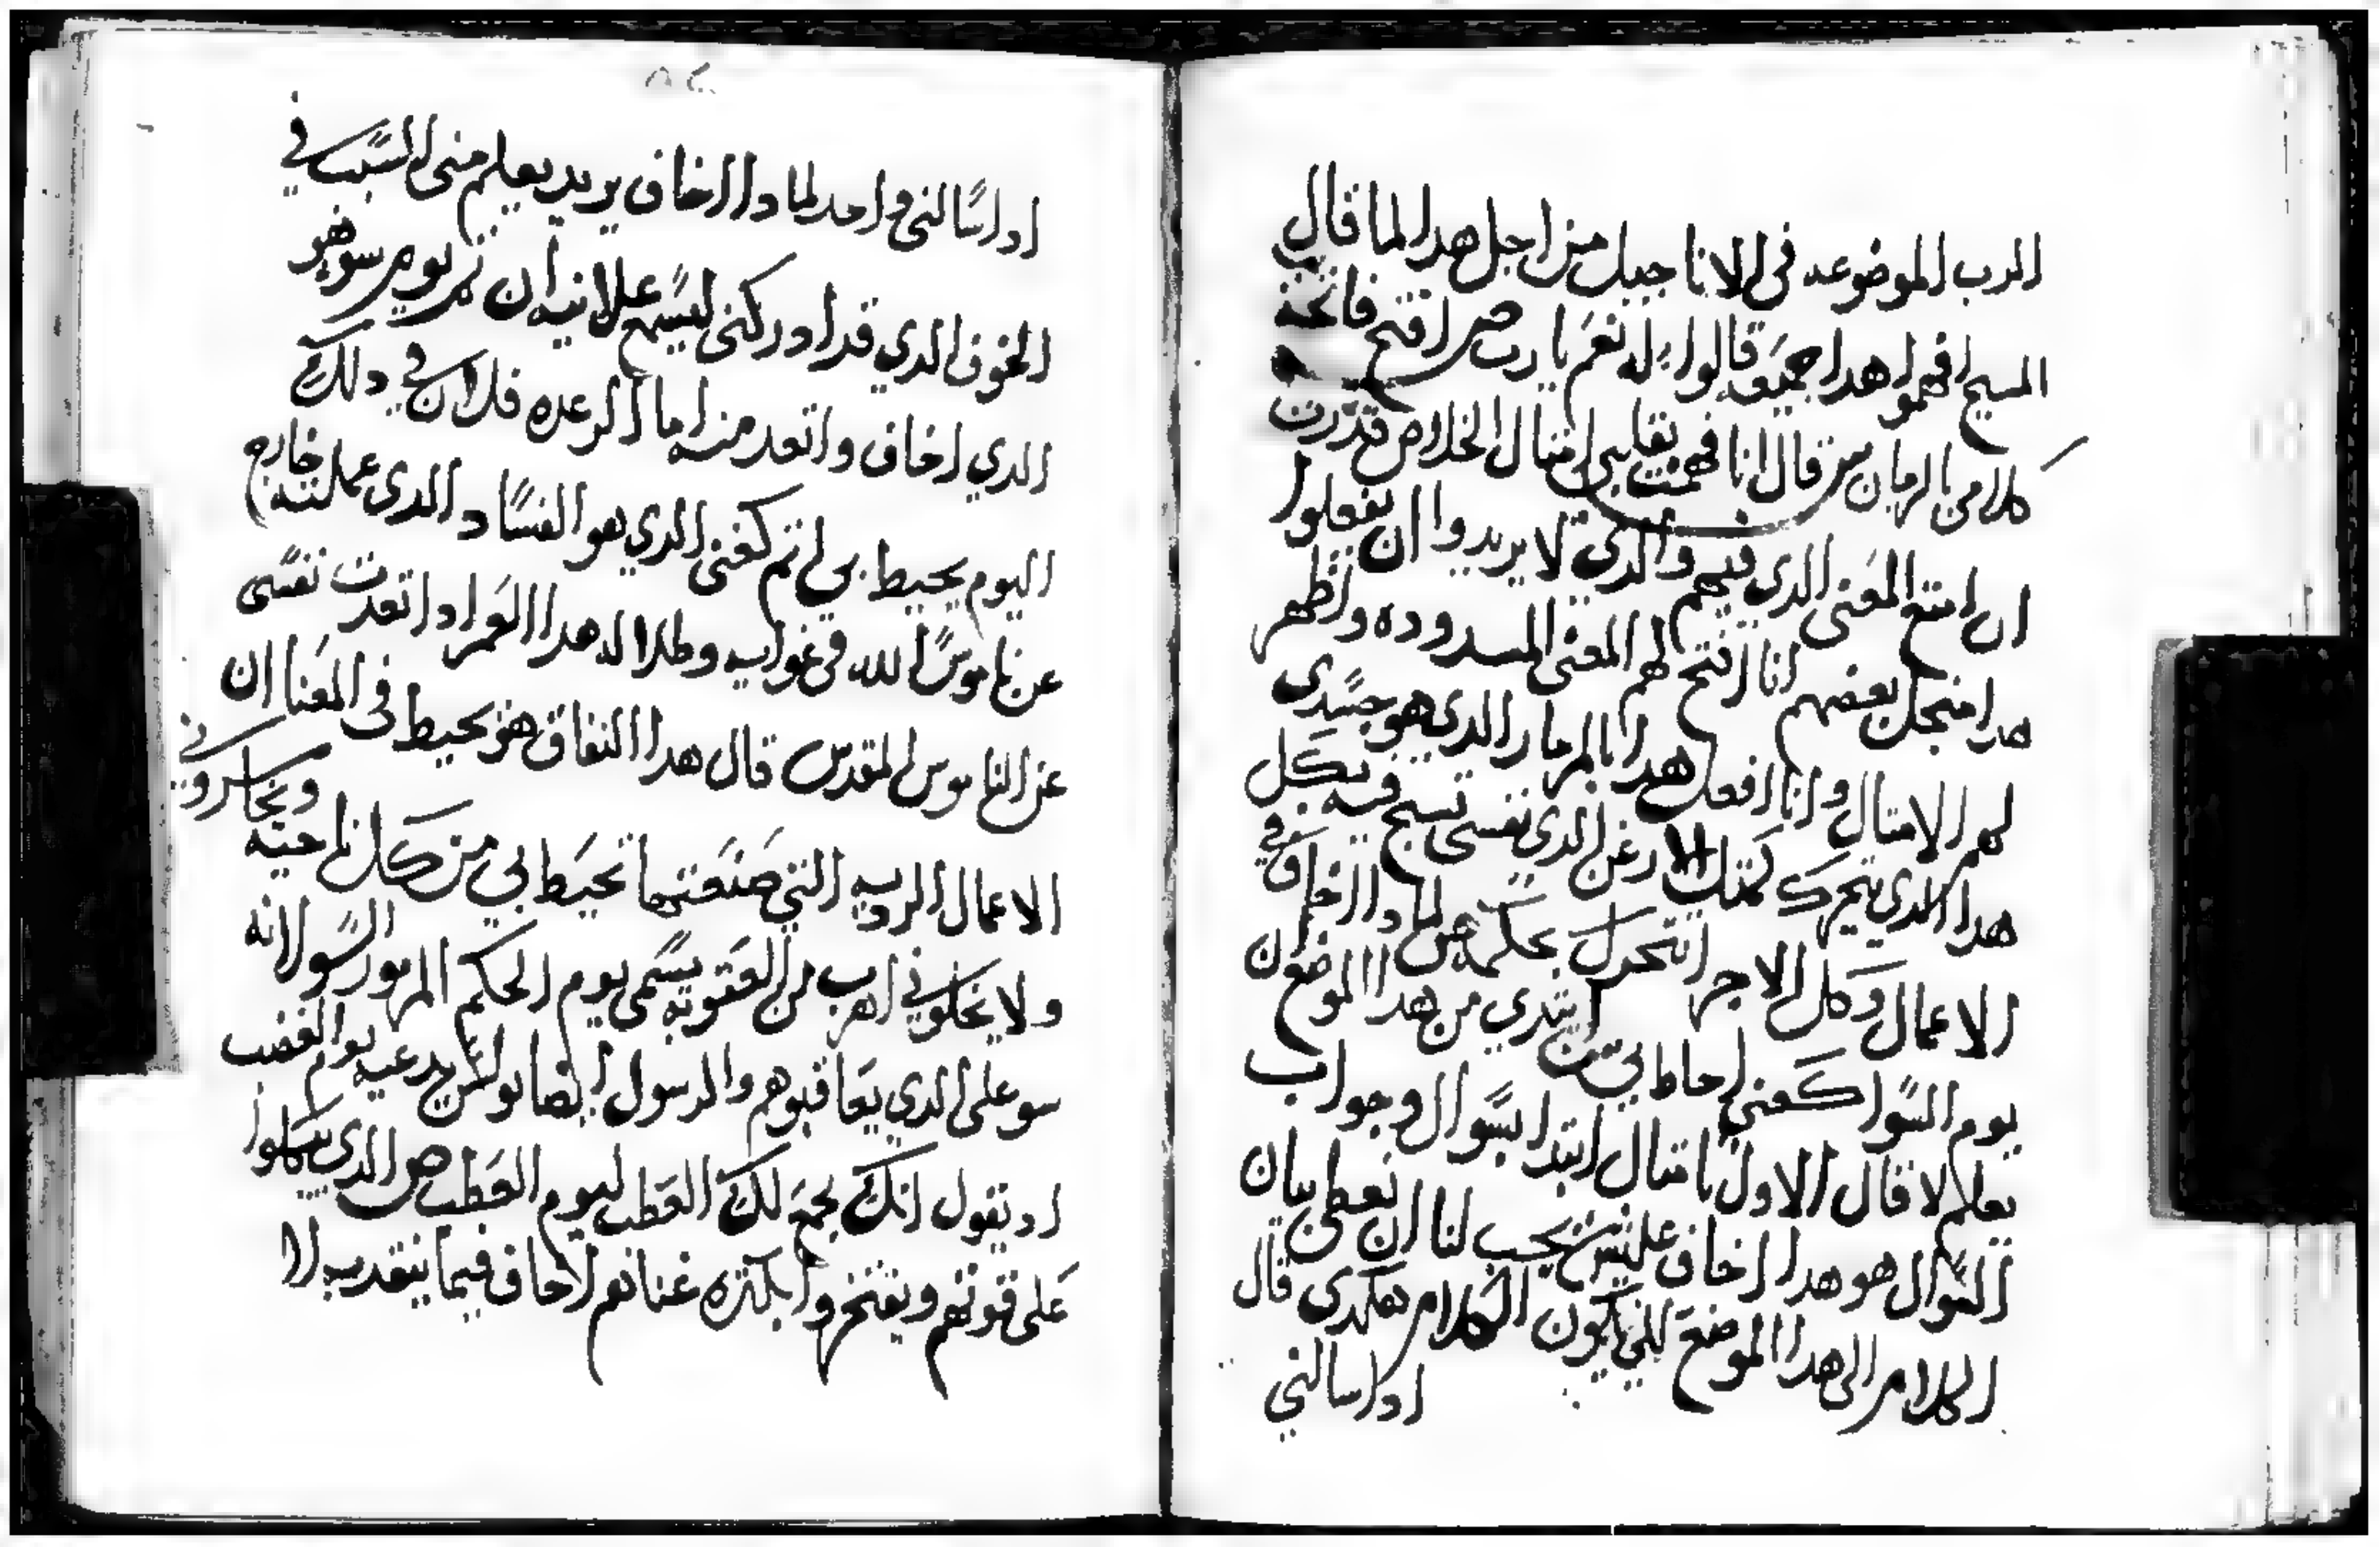 الرب الموضوعه في الاناجيل من اجل هدا لما قال
المسيح افهموا هدا جميعه قالوا له نعم يا رب ص افتح فاتحة
كلامي بالزمان س قال انا فهمت بقلبي امثال الخلاص قدرت
ان امتع المعنى الدي فيهم والدي لا يريدوا ان يفعلوا
هدا منجل بعضهم انا افتح لهم المعنى المسدوده وتظهر
لهم الامتال وانا افعل هدا بالمزمار الدي هو جسدي
هدا الدي يتحرك كمتل الارغن الدي نفسي تسبح فيه بكل
الاعمال وكل الاجر اتتحرك بحكمه ص لمادا اخاف في
يوم السوا كعني احاط بي تن ابتدي من هدا الموضع ان
يعلم لا قال الاول بامتال ابتدا بسوال وجواب
السوال هو هدا اخاف عليش يجب لنا ان نعطى بيان
الكلام الى هدا الموضع لكي يكون الكلام هكدي قال
ادا سالني
ادا سالني واحد لمادا اخاف يريد يعلم منى السبب في
الخوف الدي قد ادركنى ليسمع علانيه ان تم يوم سو هو
الدي اخاف واتعد منه اما الرعده فلان في دلك
اليوم يحيط بي اتم كعنى الدي هو الفساد الدي عملته خارج
عن ناموس الله في غوايه وطلاله هدا العمر ادا تعدت نفسى
عن الناموس المقدس قال هدا النفاق هو يحيط في المعنا ان
الاعمال الرديه التي صنعتها تحيط بي من كل ناحيه وتخاسروني
ولا يخلوني اهرب من العقوبه يسمى يوم الحكم المزمور السو لانه
سو على الدي يعاقبوهم والرسول ايضا بولس يدعيه يوم الغضب
اد يقول انك تجمع لك الغطب ليوم الغطب ص الدي يتكلوا
على قوتهم ويفتخروا بكتره غناهم لا خاف فيما يتقدم الا